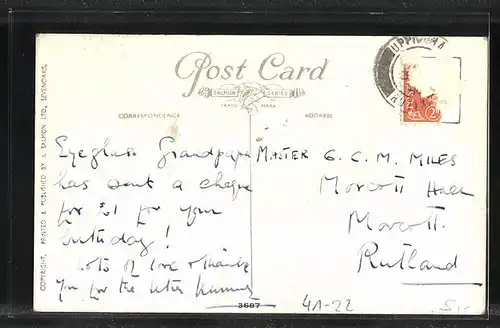 Post Card
SALMON SERIES
TRADE MARK
CORRESPONDENCE
ADDRESS
COPYRIGHT. PRINTED & PUBLISHED BY J. SALMON LTD., SEVENOAKS.
UPPINGHAM
2
Eyeglass Grandpapa
has sent a cheque
for £1 for your
birthday!
Lots of love & thank
you for the letter Mummy
MASTER G. C. M. MILES
Morcott Hall
Morcott.
Rutland
3687
41-22
5,-